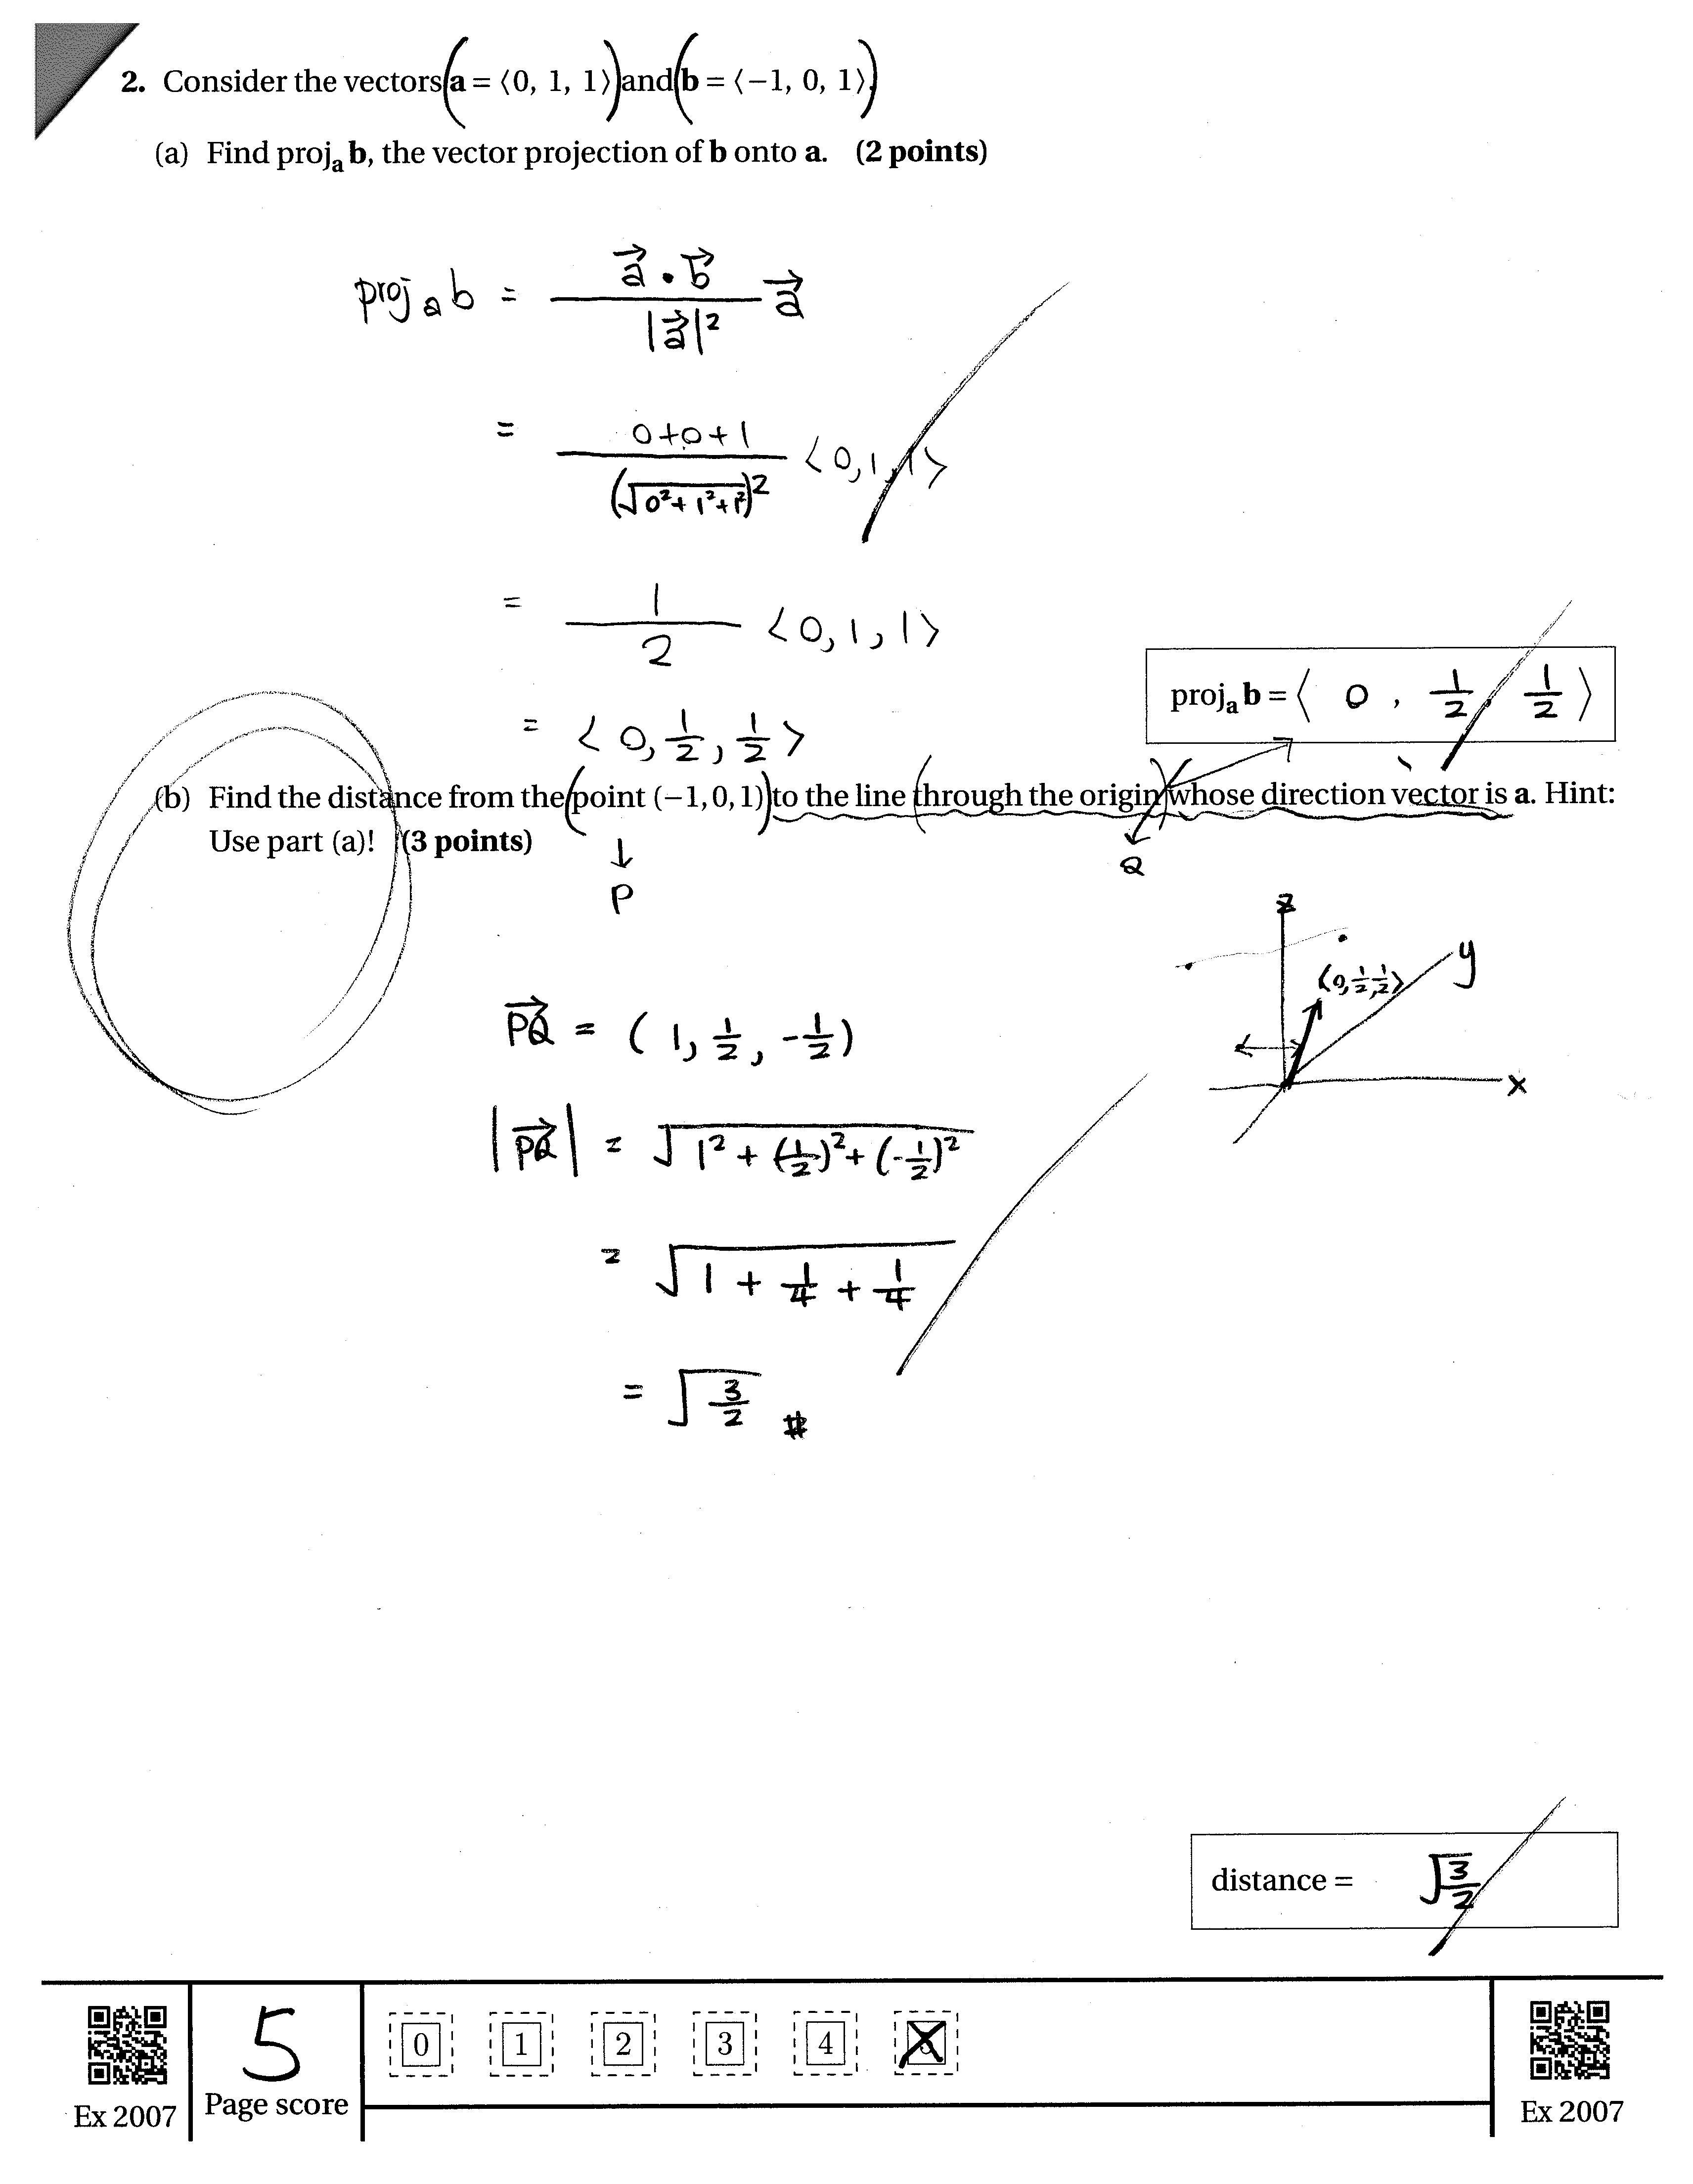 2. Consider the vectors (a = ⟨0, 1, 1⟩) and (b = ⟨−1, 0, 1⟩).
(a) Find projₐ b, the vector projection of b onto a. (2 points)
projₐ b = (a⃗ • b⃗)/|a⃗|² a⃗
= (0+0+1)/(√(0²+1²+1²))² ⟨0,1,1⟩
= 1/2 ⟨0,1,1⟩
= ⟨0, 1/2, 1/2⟩
projₐ b = ⟨ 0 , 1/2 , 1/2 ⟩
(b) Find the distance from the (point (−1,0,1)) to the line (through the origin) whose direction vector is a. Hint:
Use part (a)! (3 points)
P
Q
z
⟨0, 1/2, 1/2⟩
y
x
PQ⃗ = (1, 1/2, -1/2)
|PQ⃗| = √(1² + (1/2)² + (-1/2)²)
= √(1 + 1/4 + 1/4)
= √(3/2) #
distance = √(3/2)
5
Page score
0 1 2 3 4 X
Ex 2007
Ex 2007